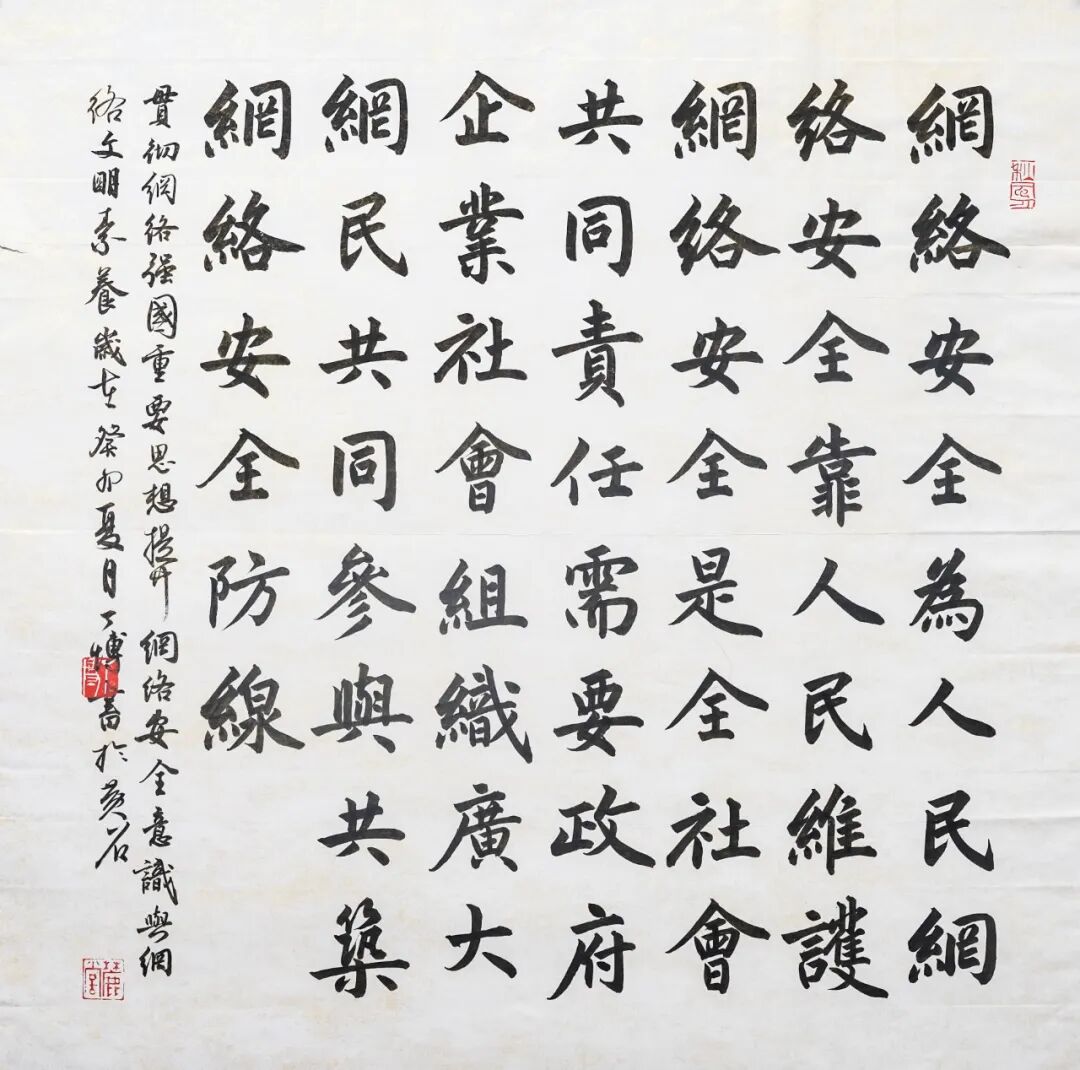 網絡安全為人民網
络安全靠人民維護
網络安全是全社會
共同責任需要政府
企業社會組織廣大
網民共同參與共築
網絡安全防線
貫彻網络强國重要思想提升網络安全意識與網
络文明素養歲在癸卯夏日丁書於黄石